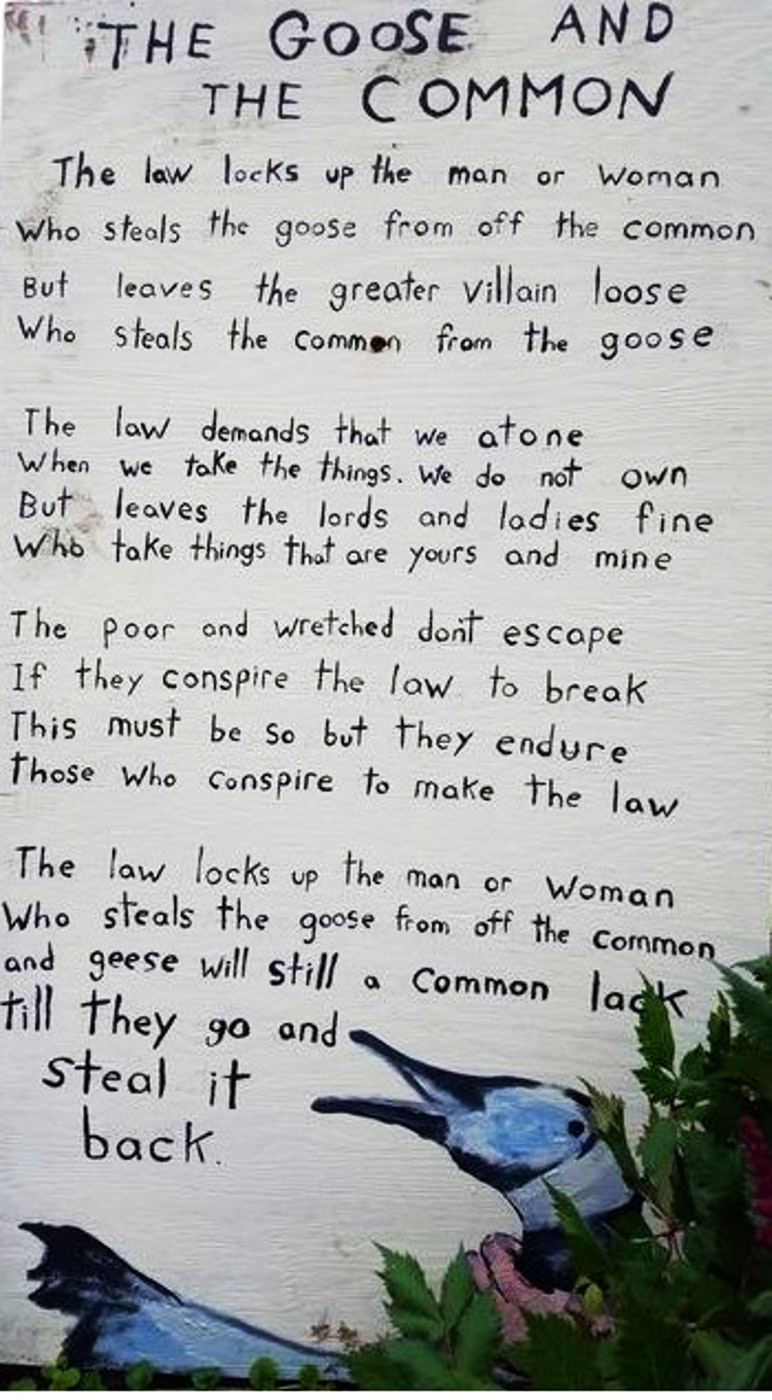 THE GOOSE AND
THE COMMON
The law locks up the man or woman
Who steals the goose from off the common
But leaves the greater villain loose
Who steals the common from the goose
The law demands that we atone
When we take the things. We do not own
But leaves the lords and ladies fine
Who take things that are yours and mine
The poor and wretched don't escape
If they conspire the law to break
This must be so but they endure
Those who conspire to make the law
The law locks up the man or woman
Who steals the goose from off the common
and geese will still a common lack
till they go and
steal it
back.